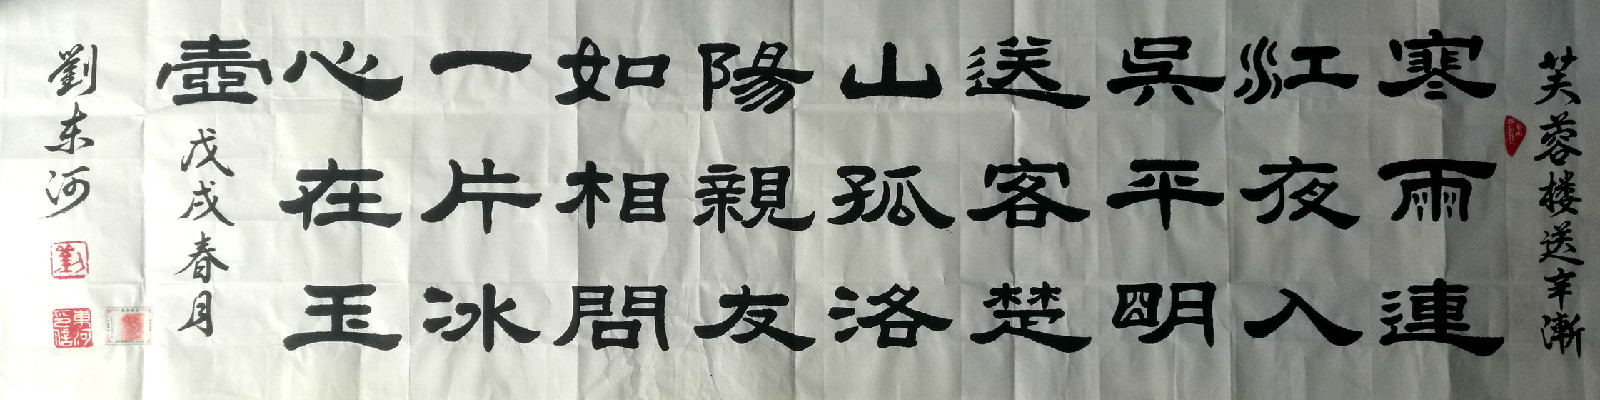 芙蓉楼送辛漸
寒雨連
江夜入
吳平明
送客楚
山孤洛
陽親友
如相問
一片冰
心在玉
壺
戊戌春月
劉东河
劉
東河
印信